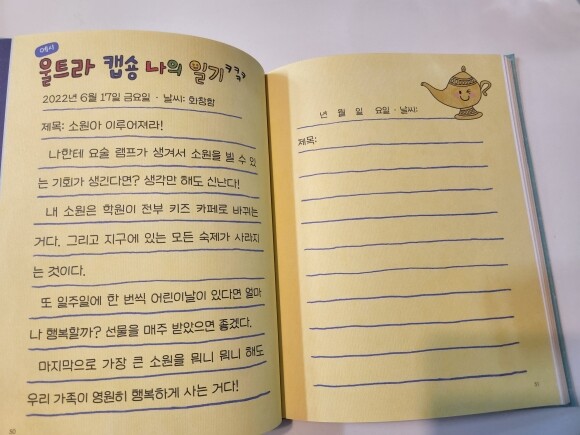 예시
울트라 캡숑 나의 일기ㅋㅋㅋ
2022년 6월 17일 금요일 · 날씨: 화창함
제목: 소원아 이루어져라!
나한테 요술 램프가 생겨서 소원을 빌 수 있
는 기회가 생긴다면? 생각만 해도 신난다!
내 소원은 학원이 전부 키즈 카페로 바뀌는
거다. 그리고 지구에 있는 모든 숙제가 사라지
는 것이다.
또 일주일에 한 번씩 어린이날이 있다면 얼마
나 행복할까? 선물을 매주 받았으면 좋겠다.
마지막으로 가장 큰 소원을 뭐니 뭐니 해도
우리 가족이 영원히 행복하게 사는 거다!
50
년 월 일 요일 · 날씨:
제목:
51